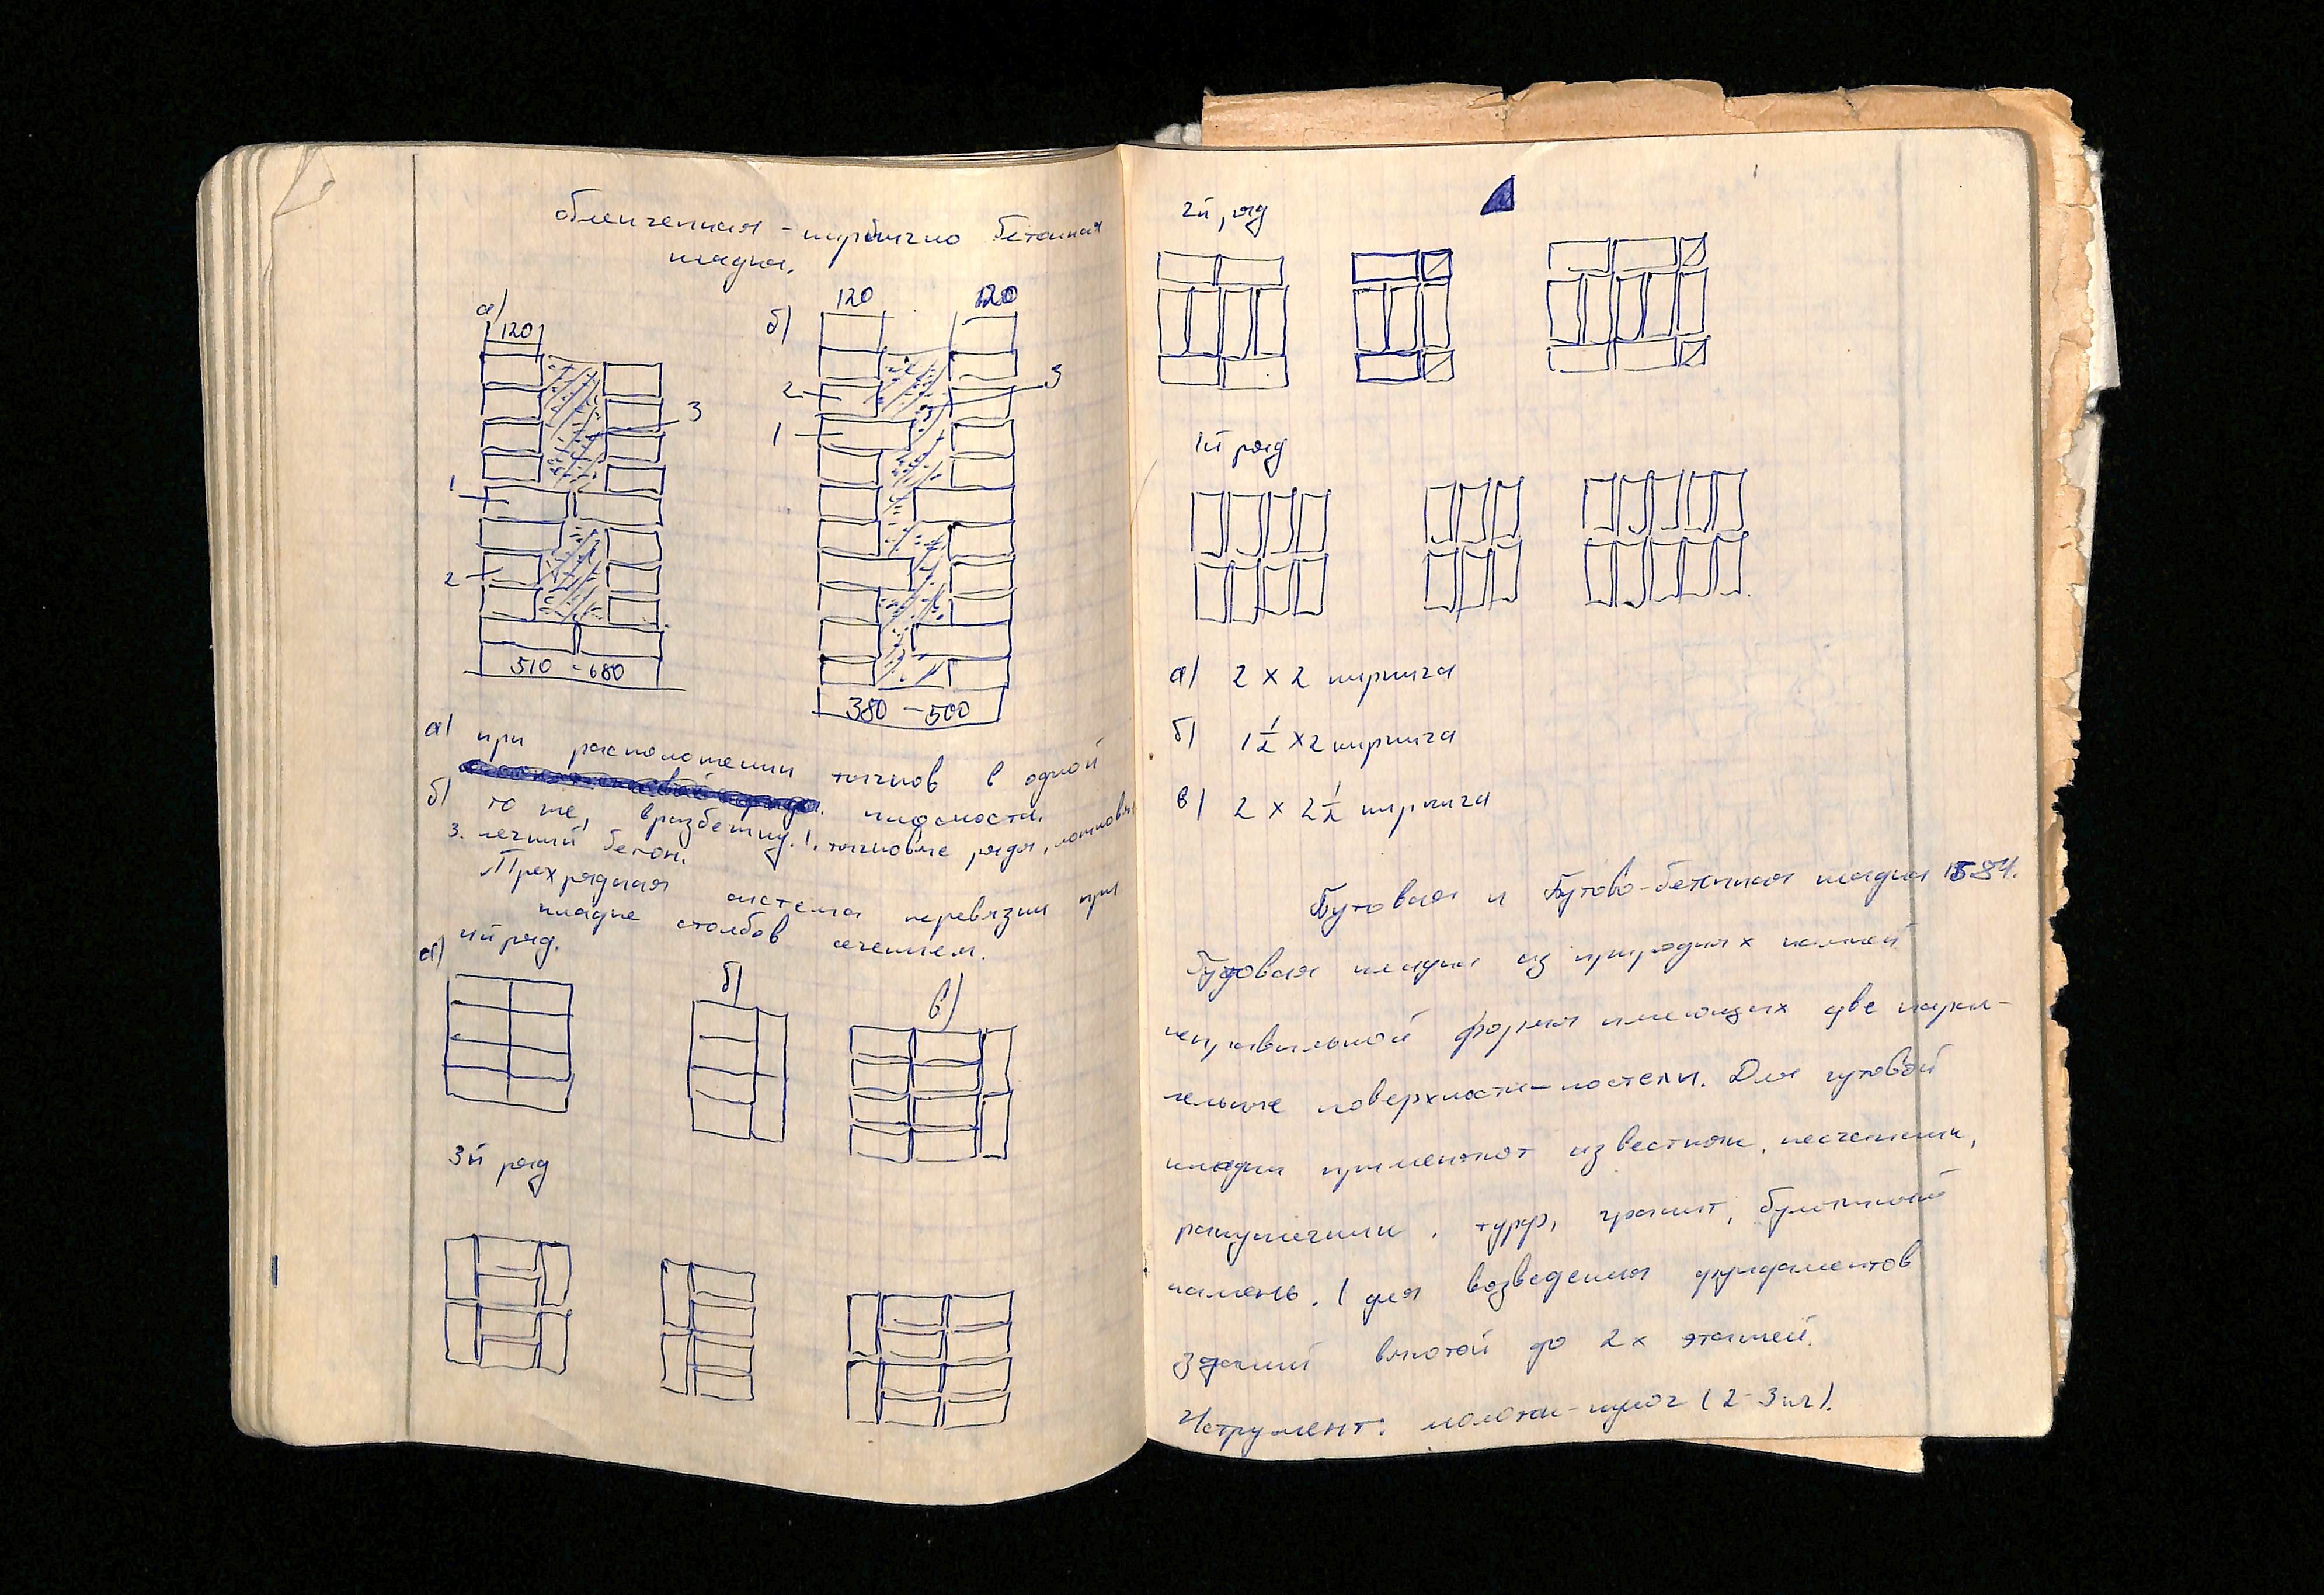 облегченная - кирбично бетонная
кладка.
а)
120
3
1
2
510 - 680
б)
120 120
2
3
1
380 - 500
а) при расположении тычков в одной
плоскости.
б) то же, вразбежку. 1. тычковые ряды, ложковые
3. легкий бетон.
Трехрядная система перевязки при
кладке столбов сечением.
1й ряд.
а)
б)
в)
3й ряд
2й ряд
1й ряд
а) 2 x 2 кирпича
б) 1 1/2 x 2 кирпича
в) 2 x 2 1/2 кирпича
Бутовая и Бутово-бетонная кладка
Бутовая кладка из природных камней
неправильной формы имеющих две парал-
ельные поверхности-постели. Для бутовой
кладки применяют известняк, песчаники,
ракушечники, туф, гранит, булыжный
камень. ( для возведения фундаментов
зданий высотой до 2х этажей.
Иструмент: молоток-кулак (2-3 кг).